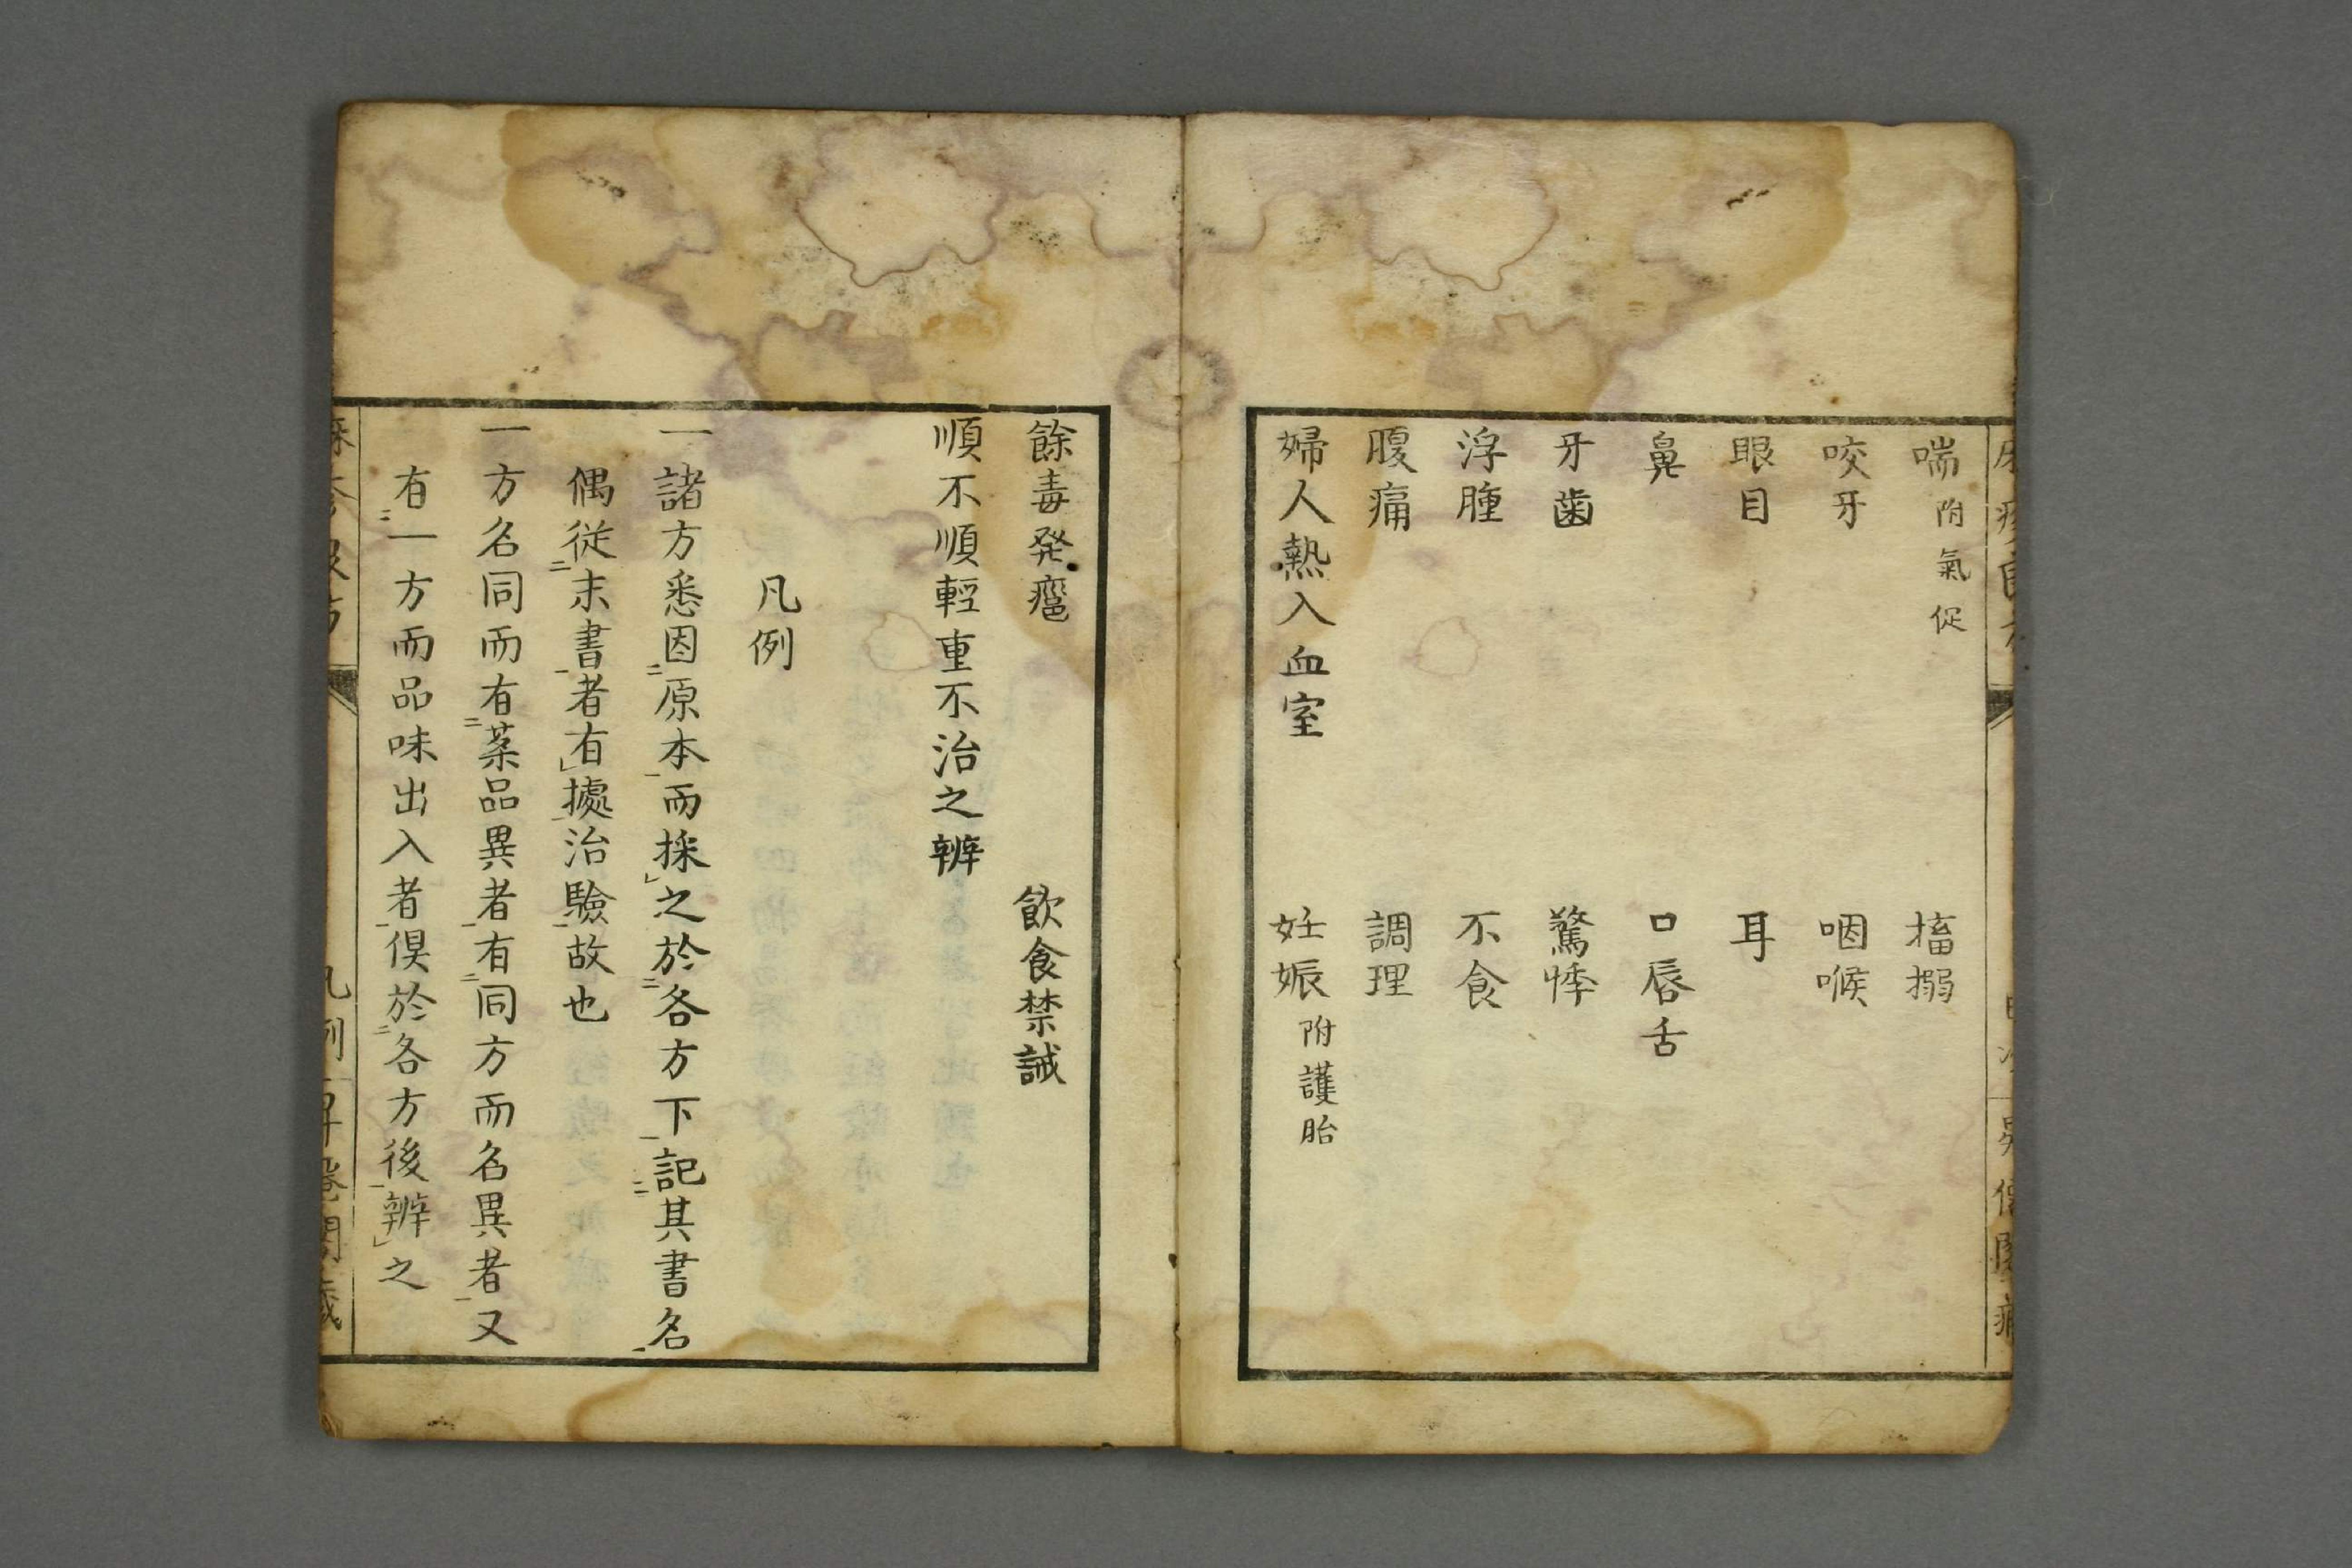 喘 附氣促 搐搦
咬牙 咽喉
眼目 耳
鼻 口唇舌
牙歯 驚悸
浮腫 不食
腹痛 調理
婦人熱入血室 妊娠 附護胎
餘毒発癰 飲食禁誡
順不順輕重不治之辨
凡例
一諸方悉因二原本一而採レ之於二各方下一記二其書名一
偶従二末書一者有レ據二治驗一故也
一方名同而有二薬品異者一有二同方而名異者一又
有二一方而品味出入者一俱於二各方後一辨レ之
凡例